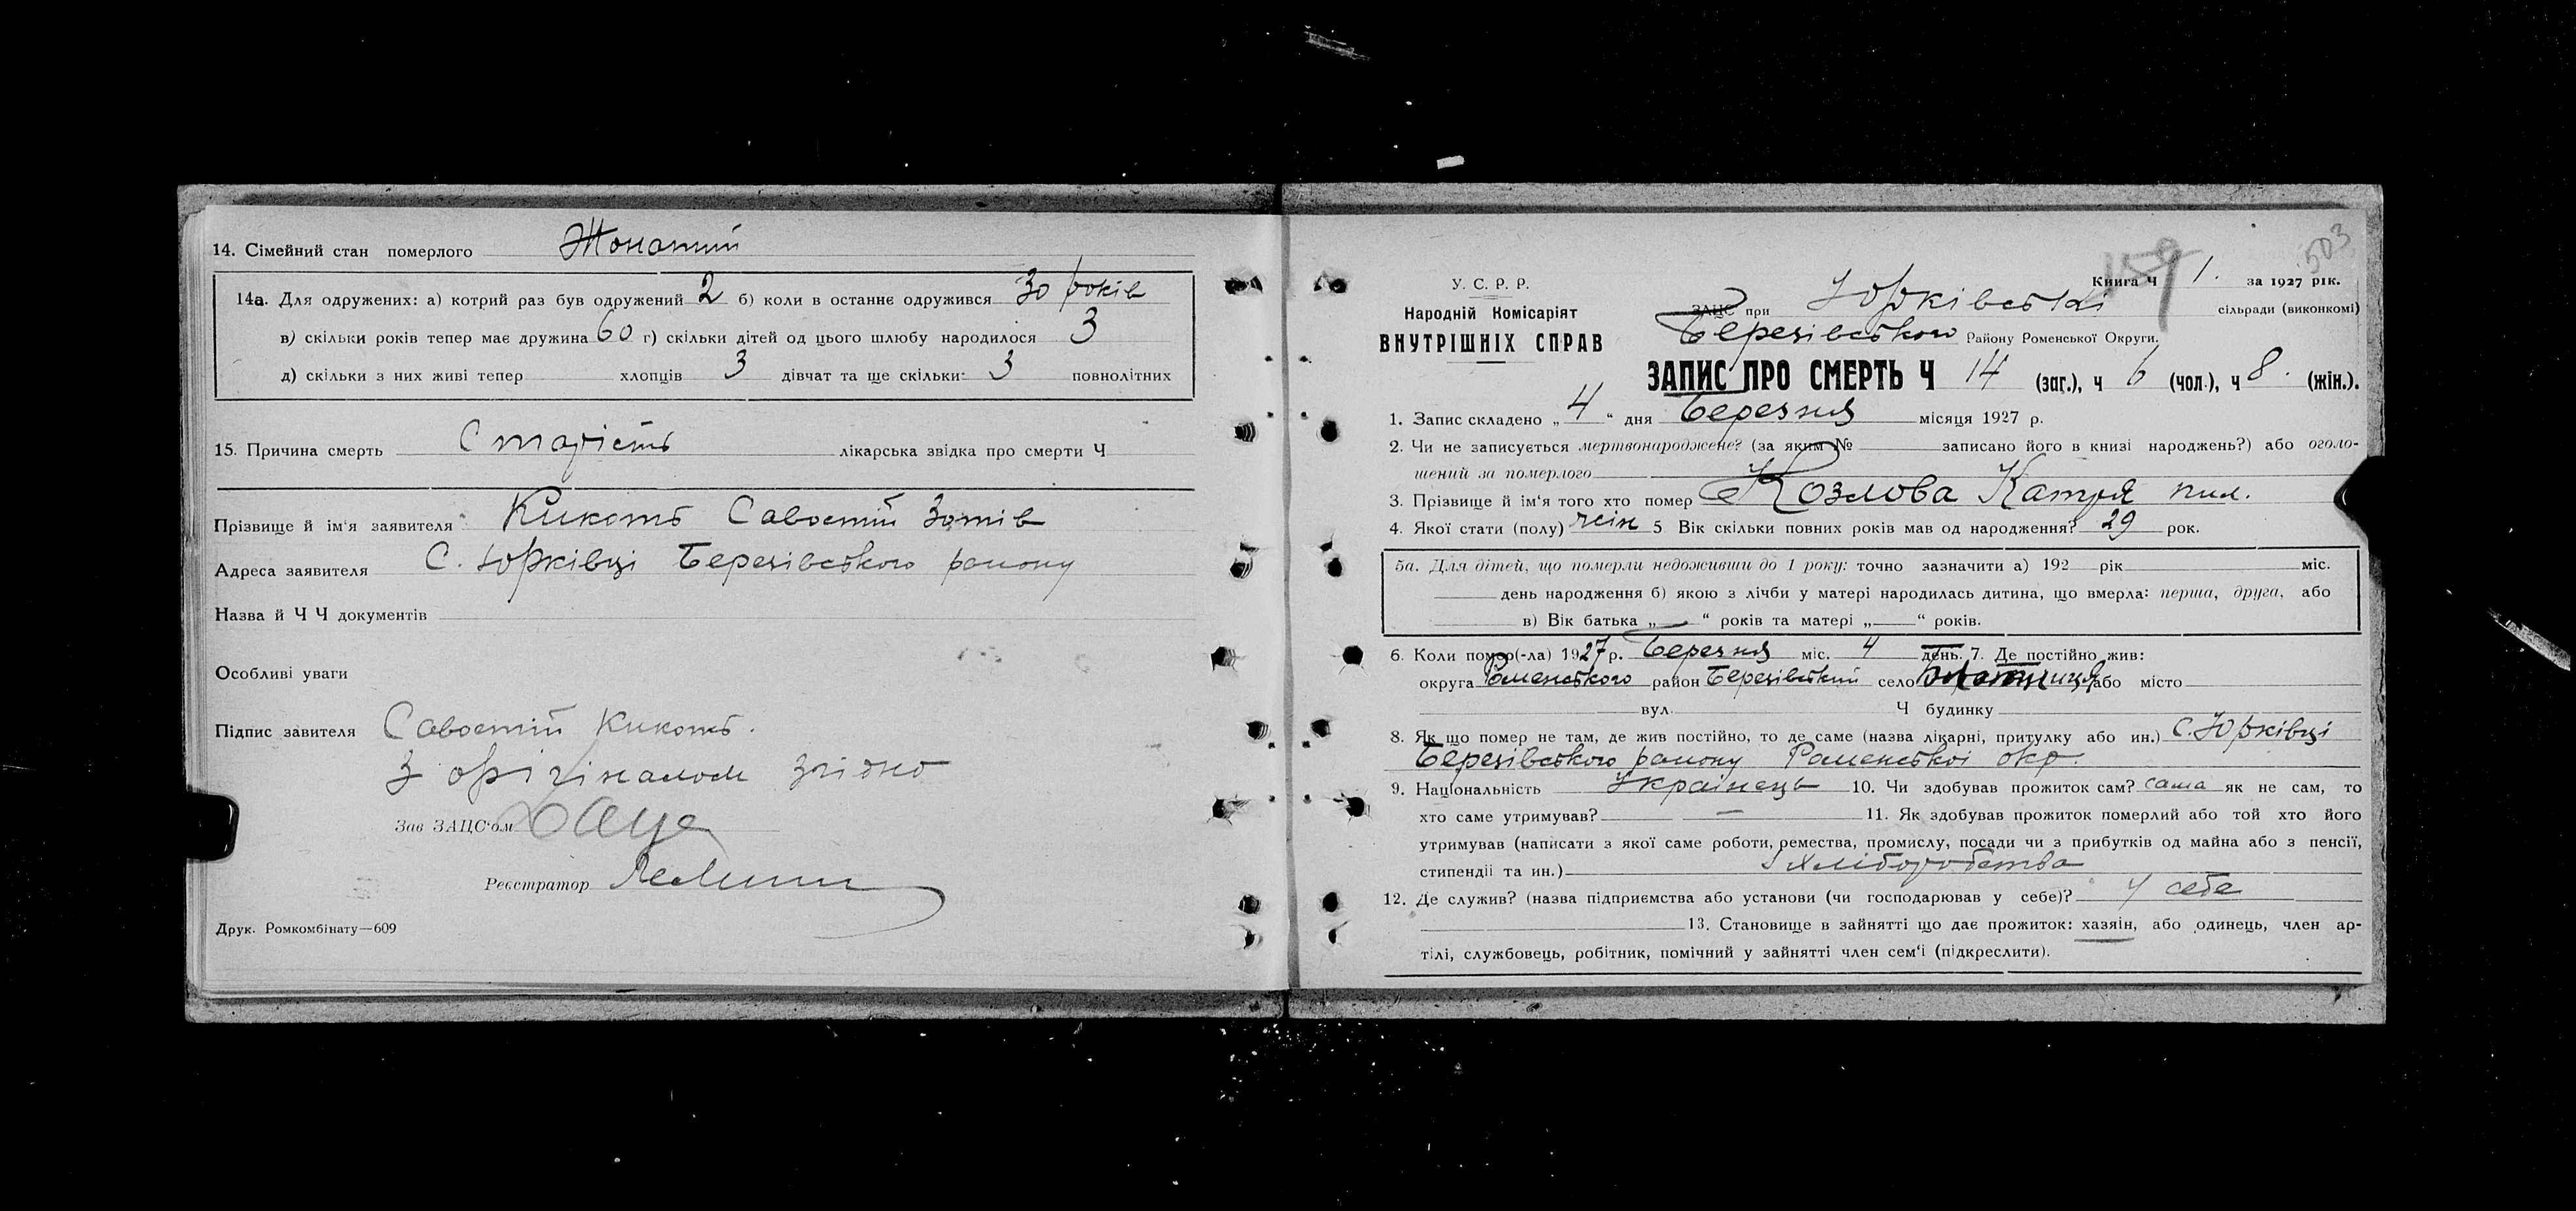 14. Сімейний стан померлого Жонатий
14а. Для одружених: а) котрий раз був одружений 2 б) коли в останнє одружився 30 років
в) скільки років тепер має дружина 60 г) скільки дітей од цього шлюбу народилося 3
д) скільки з них живі тепер хлопців 3 дівчат та ще скільки: 3 повнолітних
15. Причина смерть Старість лікарська звідка про смерти Ч
Прізвище й ім'я заявителя Кикоть Савостій Зотів
Адреса заявителя С. Юрківці Березівського району
Назва й Ч Ч документів
Особливі уваги
Підпис завителя Савостій Кикоть.
З орігіналом згідно
Зав ЗАЦС'ом
Реєстратор
Друк. Ромкомбінату—609
503
159
У. С. Р. Р.
Книга Ч 1. за 1927 рік.
Народній Комісаріят
ВНУТРІШНІХ СПРАВ
ЗАЦС при Юрківські сільради (виконкомі)
Березівського Району Роменської Округи.
ЗАПИС ПРО СМЕРТЬ Ч 14 (заг.), ч 6 (чол.), ч 8. (жін.).
1. Запис складено „ 4 “ дня Березня місяця 1927 р.
2. Чи не записується мертвонароджене? (за яким № записано його в книзі народжень?) або оголо-
шений за померлого
3. Прізвище й ім'я того хто помер Козлова Катря пил.
4. Якої стати (полу) жін 5 Вік скільки повних років мав од народження? 29 рок.
5а. Для дітей, що померли недоживши до 1 року: точно зазначити а) 192 рік міс.
день народження б) якою з лічби у матері народилась дитина, що вмерла: перша, друга, або
в) Вік батька „ “ років та матері „ “ років.
6. Коли помер(-ла) 1927 р. Березня міс. 4 день. 7. Де постійно жив:
округа Роменського район Березівський село або місто
вул. Ч будинку
8. Як що помер не там, де жив постійно, то де саме (назва лікарні, притулку або ин.) С. Юрківці
Березівського району Роменської окр.
9. Національність Українець 10. Чи здобував прожиток сам? сама як не сам, то
хто саме утримував? — 11. Як здобував прожиток померлий або той хто його
утримував (написати з якої саме роботи, ремества, промислу, посади чи з прибутків од майна або з пенсії,
стипендії та ин.) з хліборобства
12. Де служив? (назва підприємства або установи (чи господарював у себе)? у себе
13. Становище в зайнятті що дає прожиток: хазяін, або одинець, член ар-
тілі, службовець, робітник, помічний у зайнятті член сем'і (підкреслити).